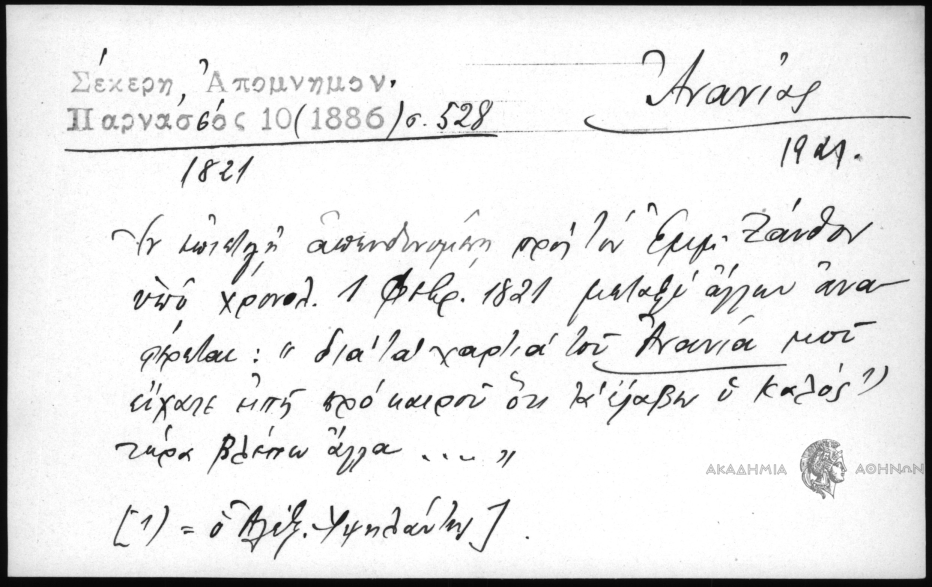 Σέκερη, Ἀπομνημον.
Παρνασσός 10 (1886) σ. 528
1821
Ἀνανίας
1921.
Ἐν ἐπιστολῇ ἀπευθυνομένῃ πρός τόν Ἐμμ. Ξάνθον
ὑπό χρονολ. 1 Φεβρ. 1821 μεταξύ ἄλλων ἀνα-
φέρεται: " διά τά χαρτιά τοῦ Ἀνανία μοῦ
εἴχατε εἰπῆ πρό καιροῦ ὅτι τά ἔλαβεν ὁ Καλός 1)
τώρα βλέπω ἄλλα .... "
[1) = ὁ Ἀλέξ. Ὑψηλάντης].
ΑΚΑΔΗΜΙΑ ΑΘΗΝΩΝ